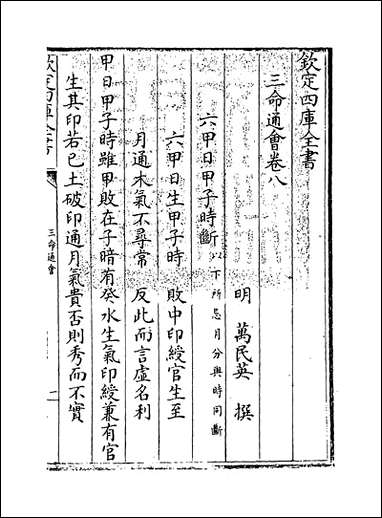 欽定四庫全書
三命通會卷八
明 萬民英 撰
六甲日甲子時斷以下所忌月分與時同斷
六甲日生甲子時 敗中印綬官生至
月通木氣不尋常 反此而言虛名利
甲日甲子時雖甲敗在子暗有癸水生氣印綬兼有官
生其印若己土破印通月氣貴否則秀而不實
欽定四庫全書
三命通會
一